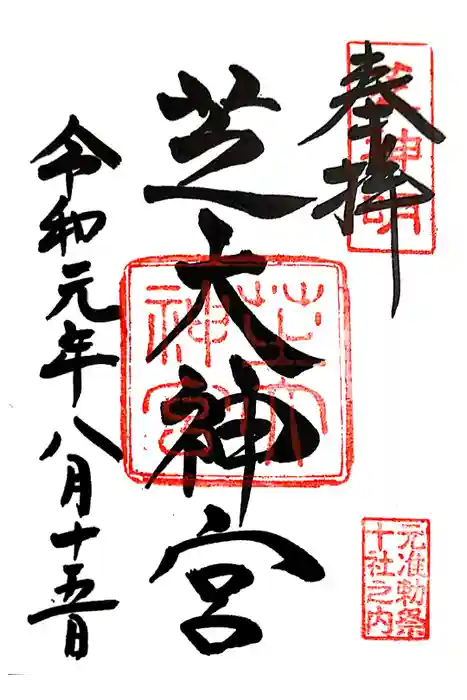 奉拝
芝神明
芝大神宮
芝大神宮
元准勅祭
十社之内
令和元年八月十五日